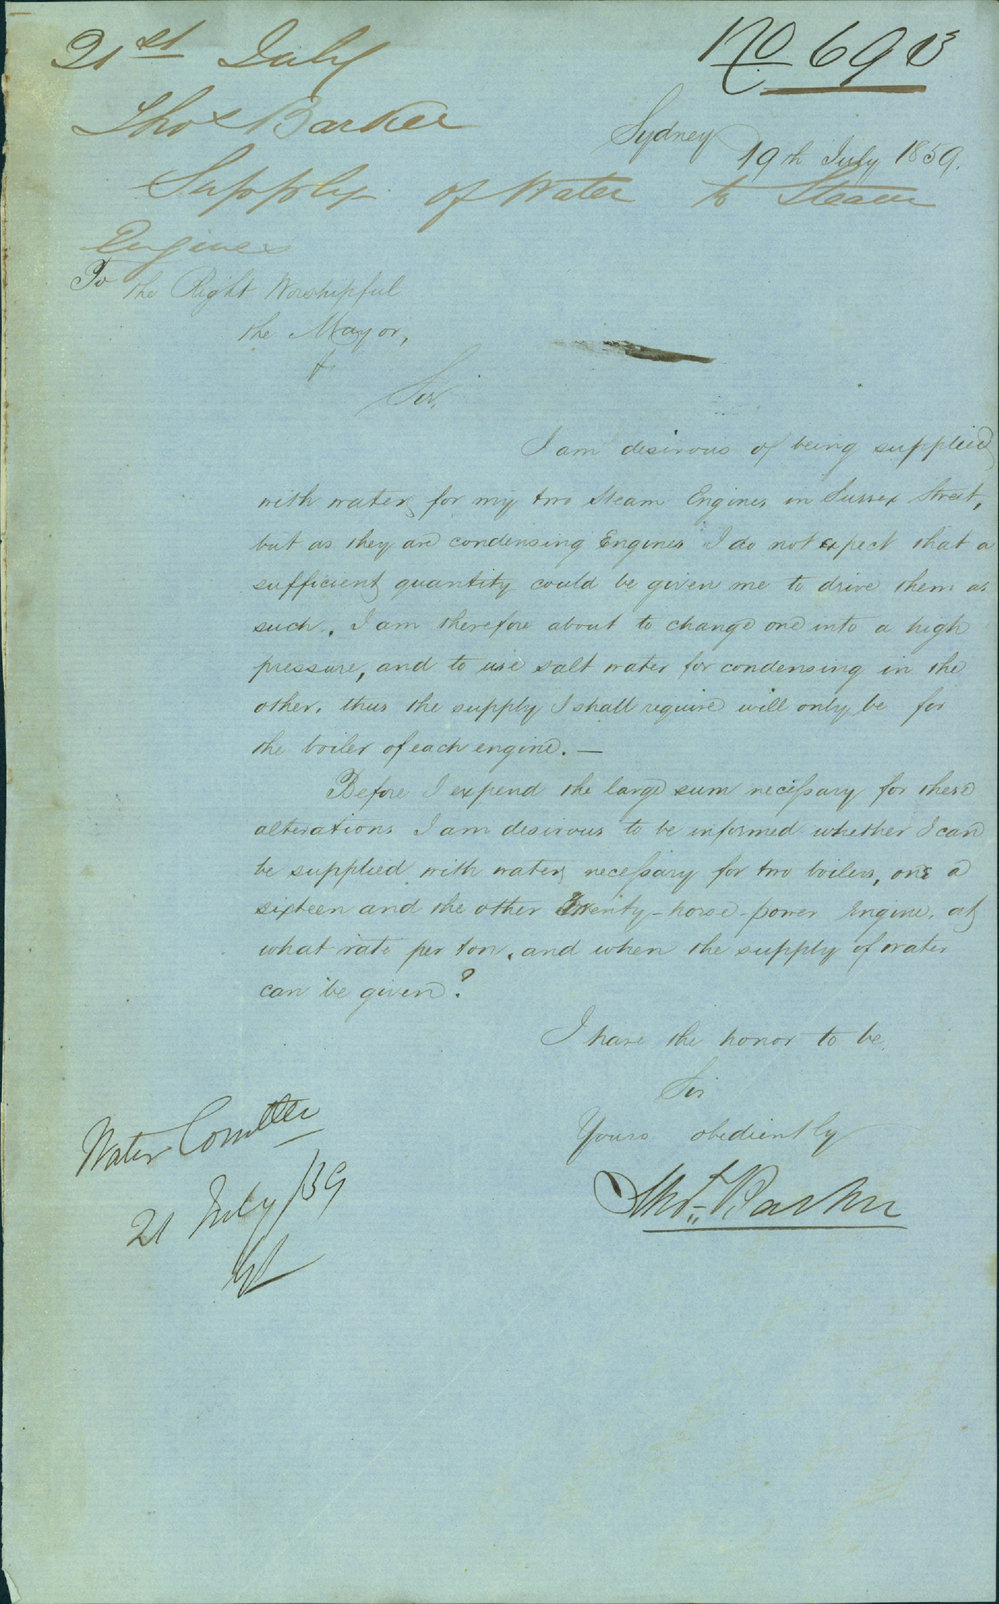 21st July
No 693
Thos Barker
Sydney
19th July 1859.
Supply of Water to Steam
Engines
To the Right Worshipful
the Mayor,
Sir,
I am desirous of being supplied
with water, for my two Steam Engines in Sussex Street,
but as they are condensing Engines I do not expect that a
sufficient quantity could be given me to drive them as
such. I am therefore about to change one into a high
pressure, and to use salt water for condensing in the
other. thus the supply I shall require will only be for
the boiler of each engine. —
Before I expend the large sum necessary for these
alterations I am desirous to be informed whether I can
be supplied with water necessary for two boilers, one a
sixteen and the other Twenty-horse-power Engine, at
what rate per ton, and when the supply of water
can be given?
I have the honor to be
Sir
Yours obediently
Thos. Barker
Water Comttee
21 July /59